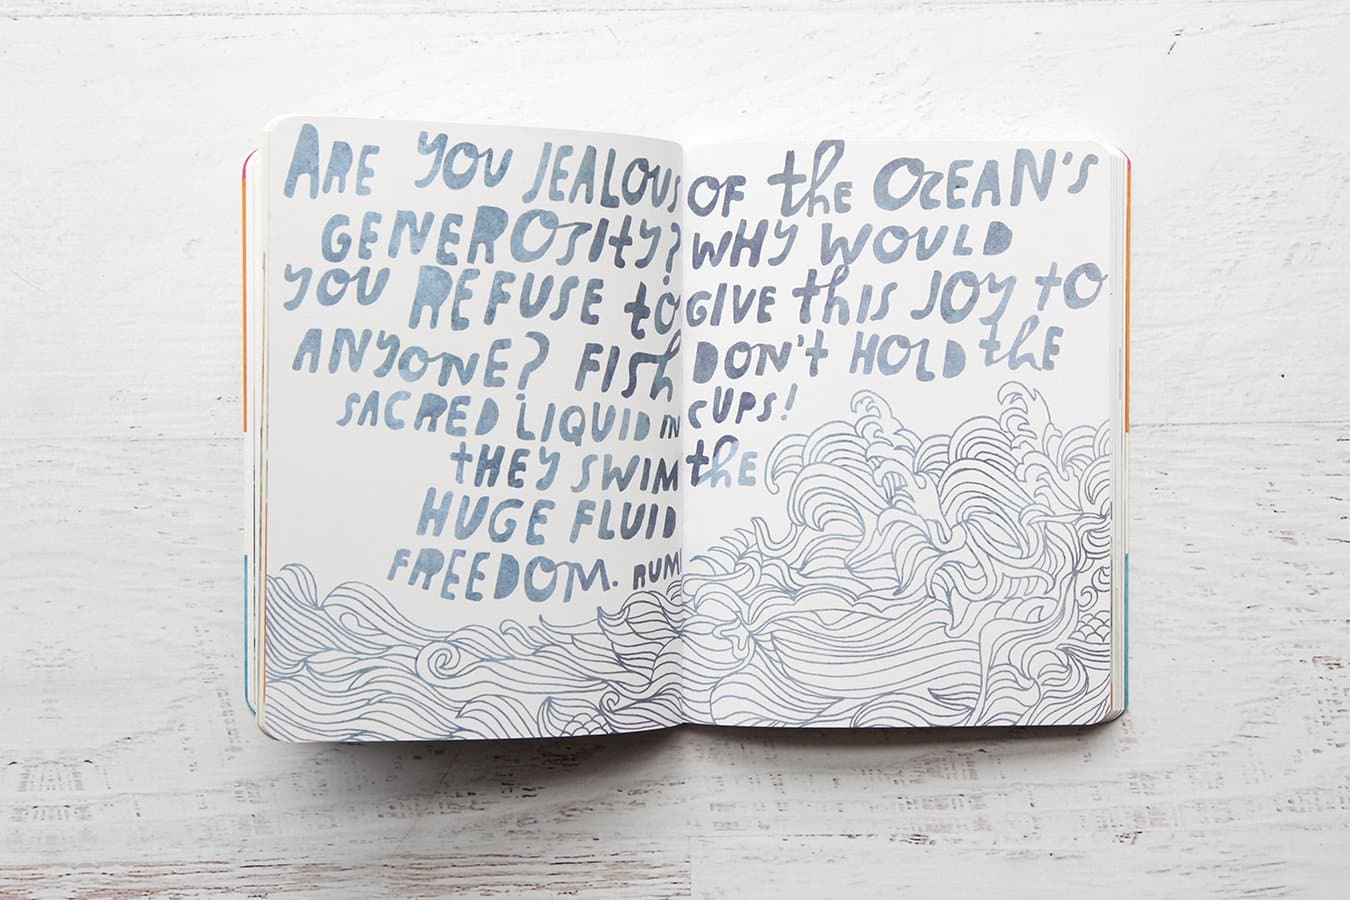 ARE YOU JEALOUS OF the OCEAN'S
GENEROSITY? WHY WOULD
YOU REFUSE to GIVE this JOY to
ANYONE? FISh DON't HOLD thE
SACRED LIQUID IN CUPS!
tHEY SWIM thE
HUGE FLUID
FREEDOM. RUMI